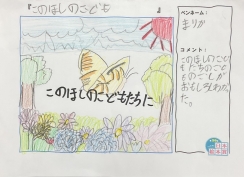 『このほしのこども
このほしのこどもたちに
ペンネーム:
まりか
コメント:
このほしのこど
もたちのこど
ものこしが
おもしろかった。